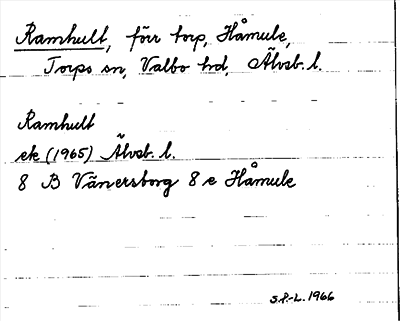 Ramhult, förr torp, Håmule,
Torps sn, Valbo hd, Älvsb. l.
Ramhult
ek (1965) Älvsb. l.
8 B Vänersborg 8 e Håmule
S.P.-L. 1966